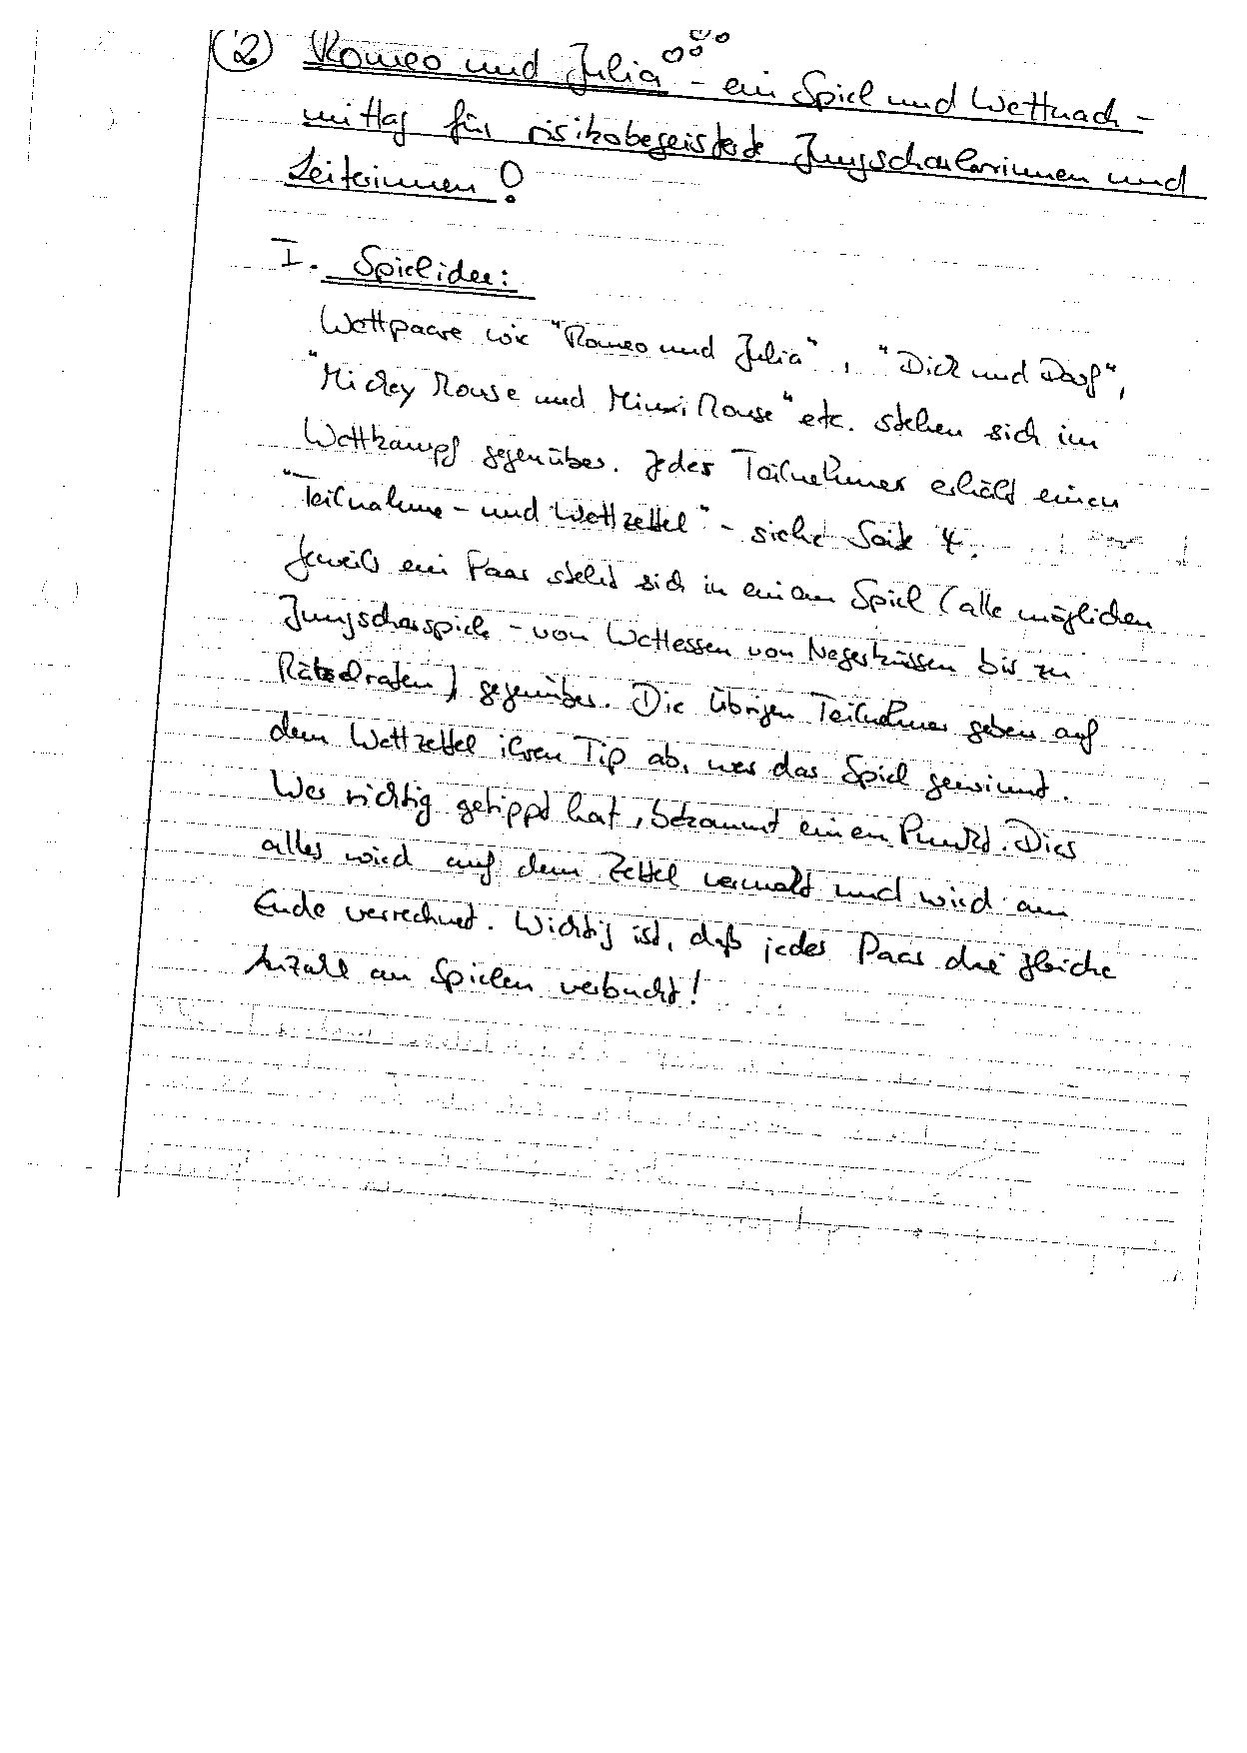 (2) Romeo und Julia - ein Spiel und Wettnach-
mittag für risikobegeisterte Jungscharlerinnen und
Leiterinnen!
I. Spielidee:
Wettpaare wie "Romeo und Julia", "Dick und Doof",
"Mickey Mouse und Mini Mouse" etc. stehen sich im
Wettkampf gegenüber. Jeder Teilnehmer erhält einen
"Teilnahme- und Wettzettel" - siehe Seite 4.
Jeweils ein Paar steht sich in einem Spiel (alle möglichen
Jungscharspiele - von Wettessen von Negerküssen bis zu
Rätselraten) gegenüber. Die übrigen Teilnehmer geben auf
dem Wettzettel ihren Tip ab, wer das Spiel gewinnt.
Wer richtig getippt hat, bekommt einen Punkt. Dies
alles wird auf dem Zettel vermerkt und wird am
Ende verrechnet. Wichtig ist, daß jedes Paar die gleiche
Anzahl an Spielen verbucht!